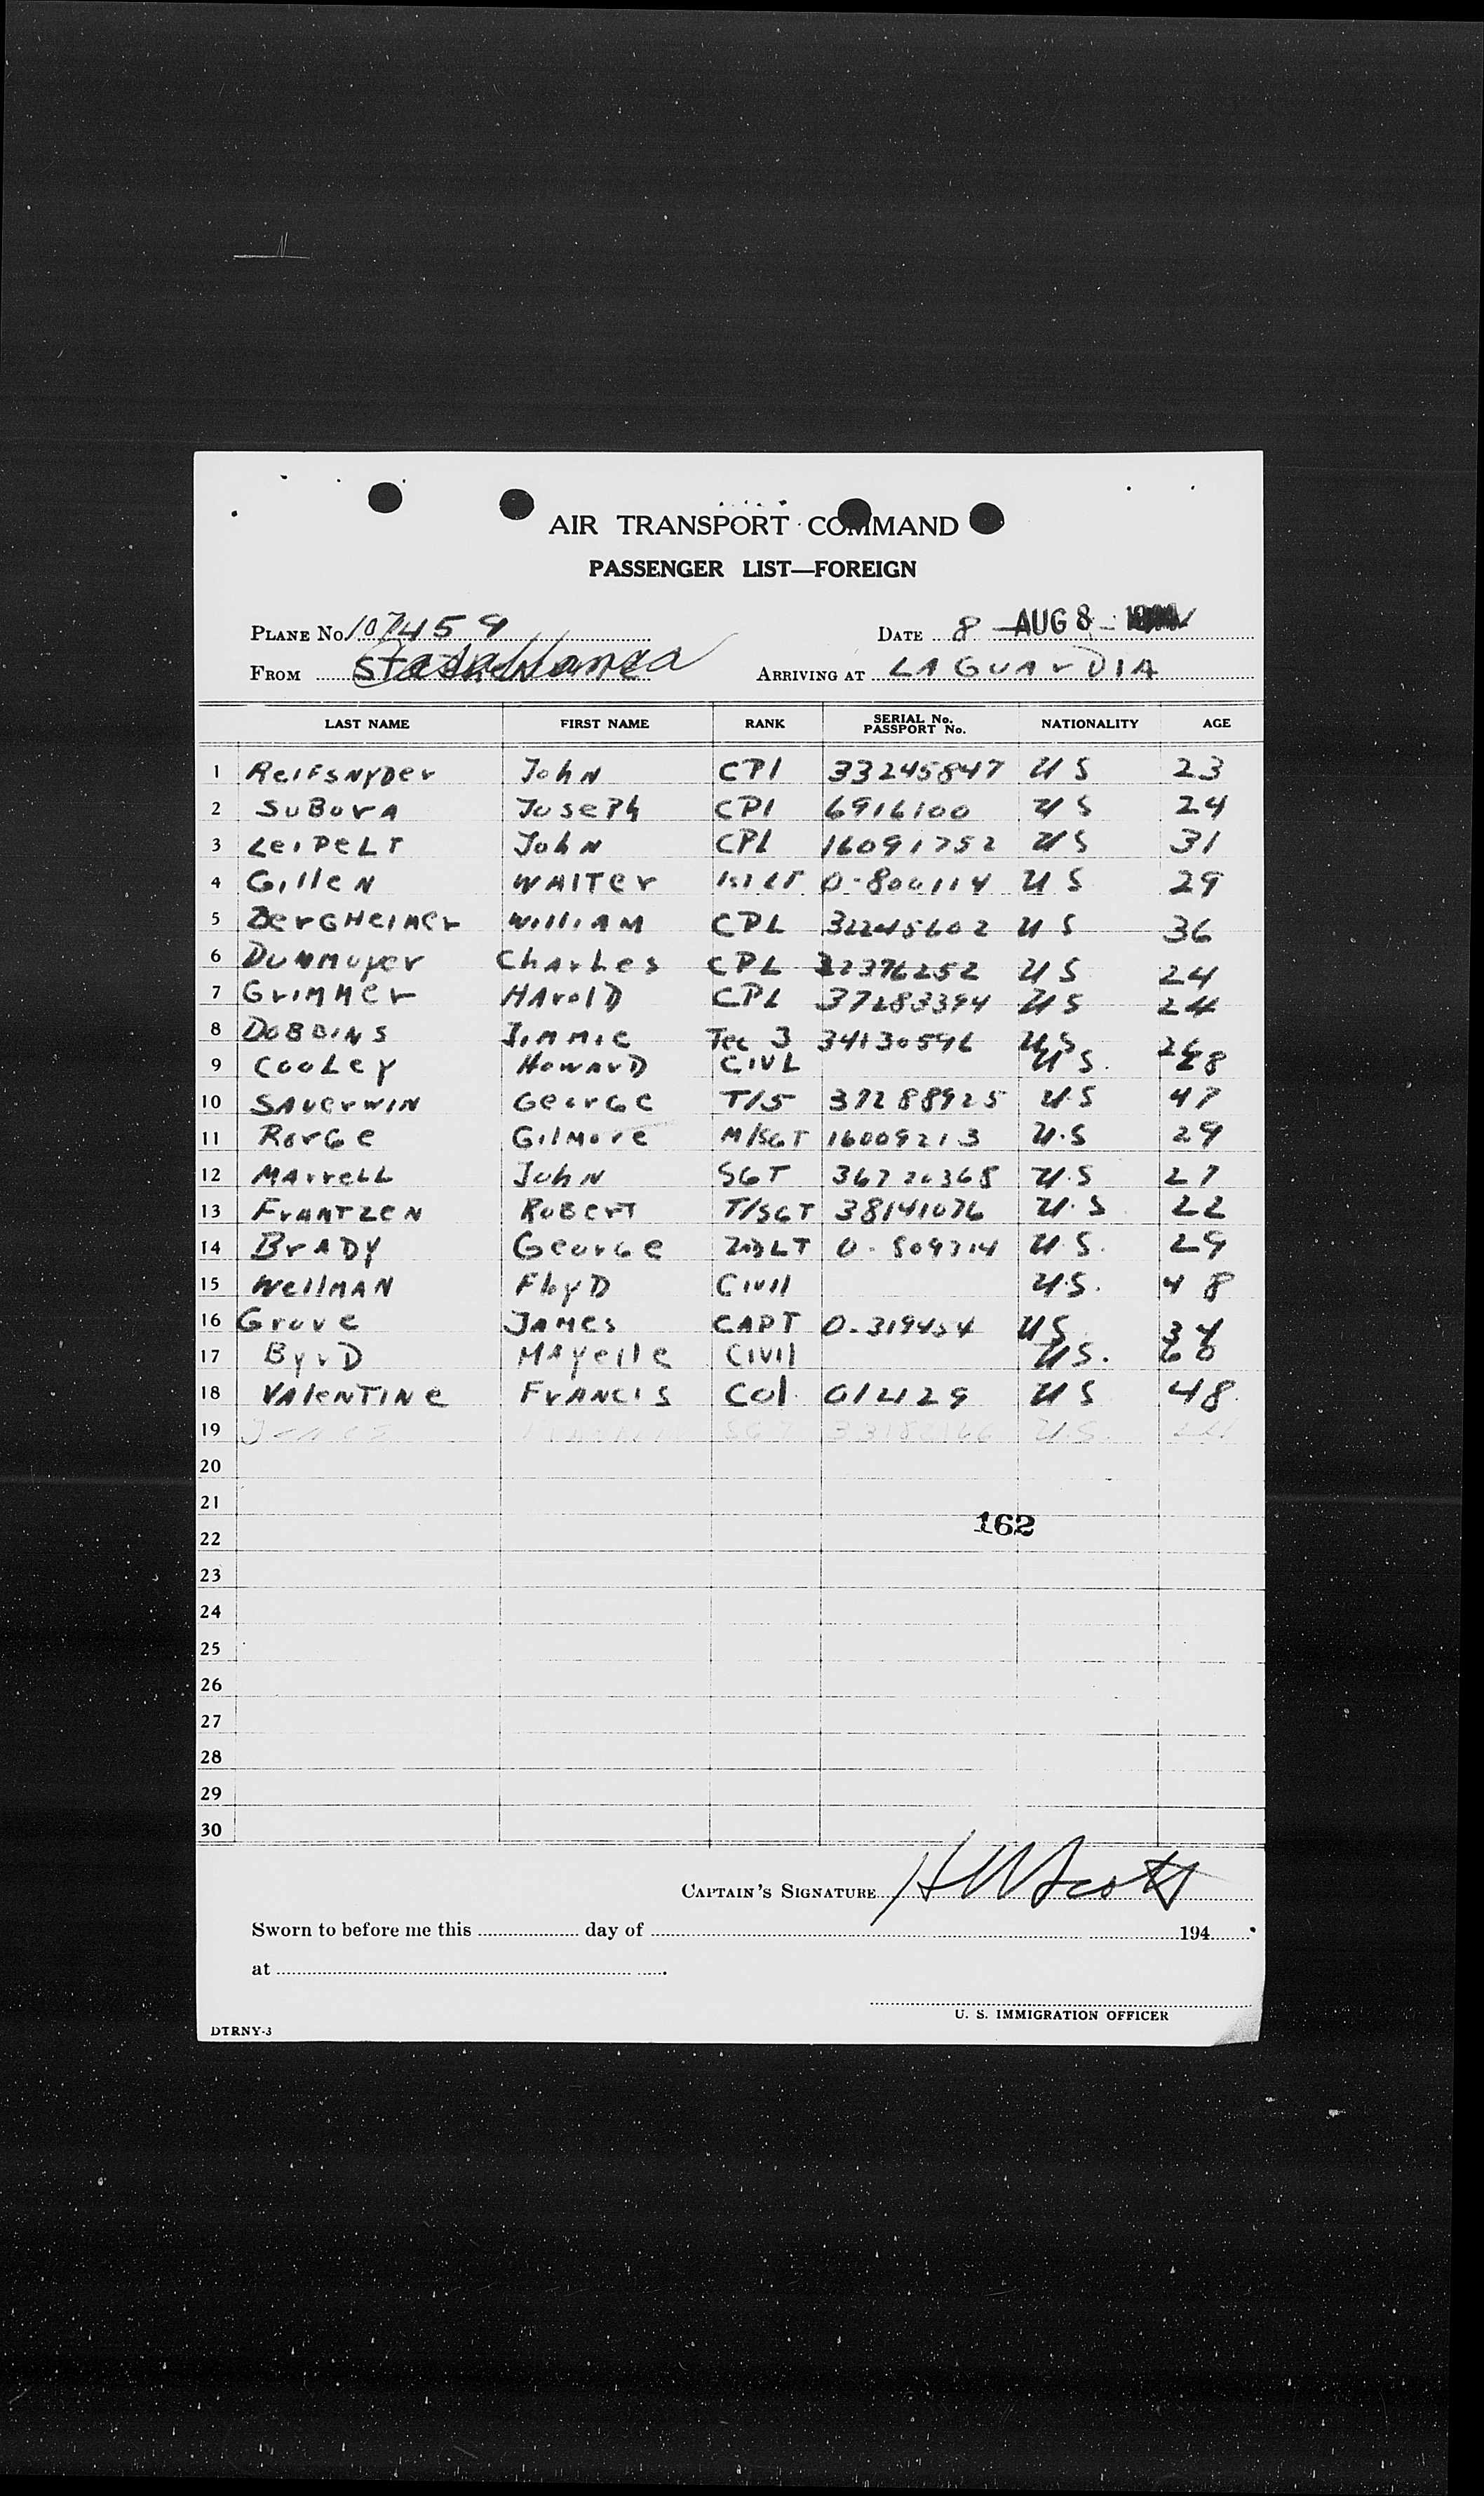 AIR TRANSPORT COMMAND
PASSENGER LIST—FOREIGN
PLANE No. 107459 DATE 8 AUG 8
FROM Casablanca ARRIVING AT LAGUARDIA
LAST NAME FIRST NAME RANK SERIAL No. PASSPORT No. NATIONALITY AGE
1 ReifsnyDer John CPl 33245847 US 23
2 SuBorA JosePh CPl 6916100 US 24
3 LeiPeLT John CPL 16091752 US 31
4 GilleN WAlTer 1st LT 0-800114 US 29
5 BerGHeimer WilliAM CPL 32245602 US 36
6 Dunmoyer CharLes CPL 32376252 US 24
7 Grimmer HArolD CPL 37283394 US 24
8 DoBBiNS Jimmie Tec 3 34130596 US 26
9 CooLey HowArD CIVL US. 28
10 SAuerwiN GeorGe T/5 37288925 US 47
11 RorGe Gilmore M/SGT 16009213 U.S 29
12 MArreLL John SGT 36720368 U.S 27
13 FrANTZEN RoBerT T/SGT 38141076 U.S 22
14 BrADY GeorGe 2ND LT 0-809714 U.S. 29
15 WellMAN FloyD Civil U.S. 48
16 Grove JAMes CAPT 0-319454 US 34
17 ByrD MAyelle Civil US. 60
18 VAleNTINe FrANCiS Col. 012129 US 48
19 SGT U.S.
20
21
162
22
23
24
25
26
27
28
29
30
CAPTAIN'S SIGNATURE H W Scott
Sworn to before me this day of 194
at
U. S. IMMIGRATION OFFICER
DTRNY-3